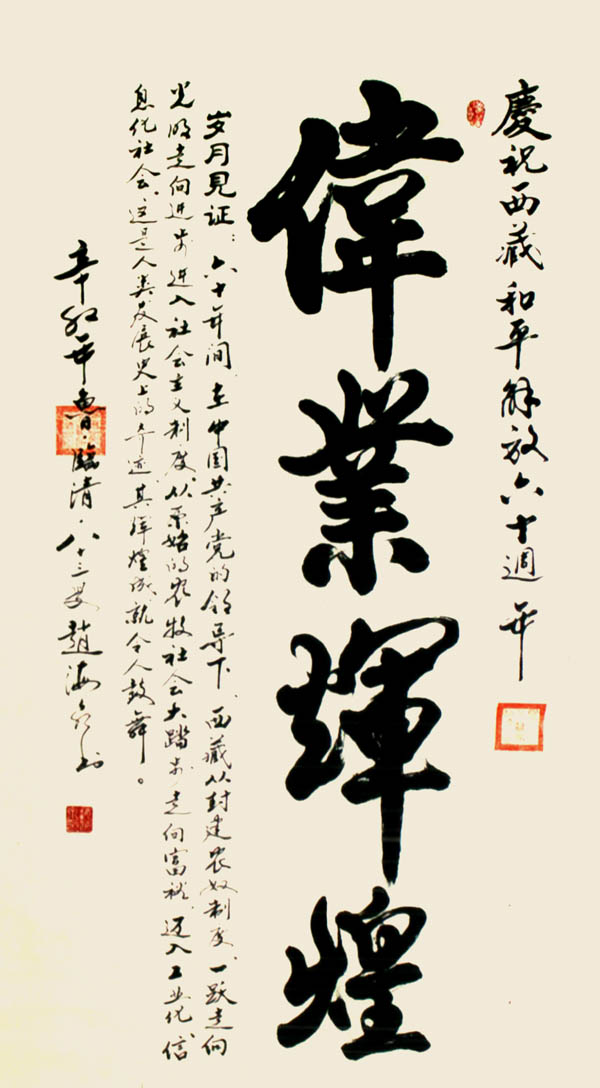 慶祝西藏和平解放六十週年
偉業輝煌
岁月見证：六十年间，在中国共产党的领导下，西藏从封建农奴制度，一跃走向
光明走向进步，进入社会主义制度，从原始的农牧社会大踏步走向富裕，迈入工业化、信
息化社会，这是人类发展史上的奇迹，其辉煌成就令人鼓舞。
辛卯年鲁·臨清·八十三叟趙海